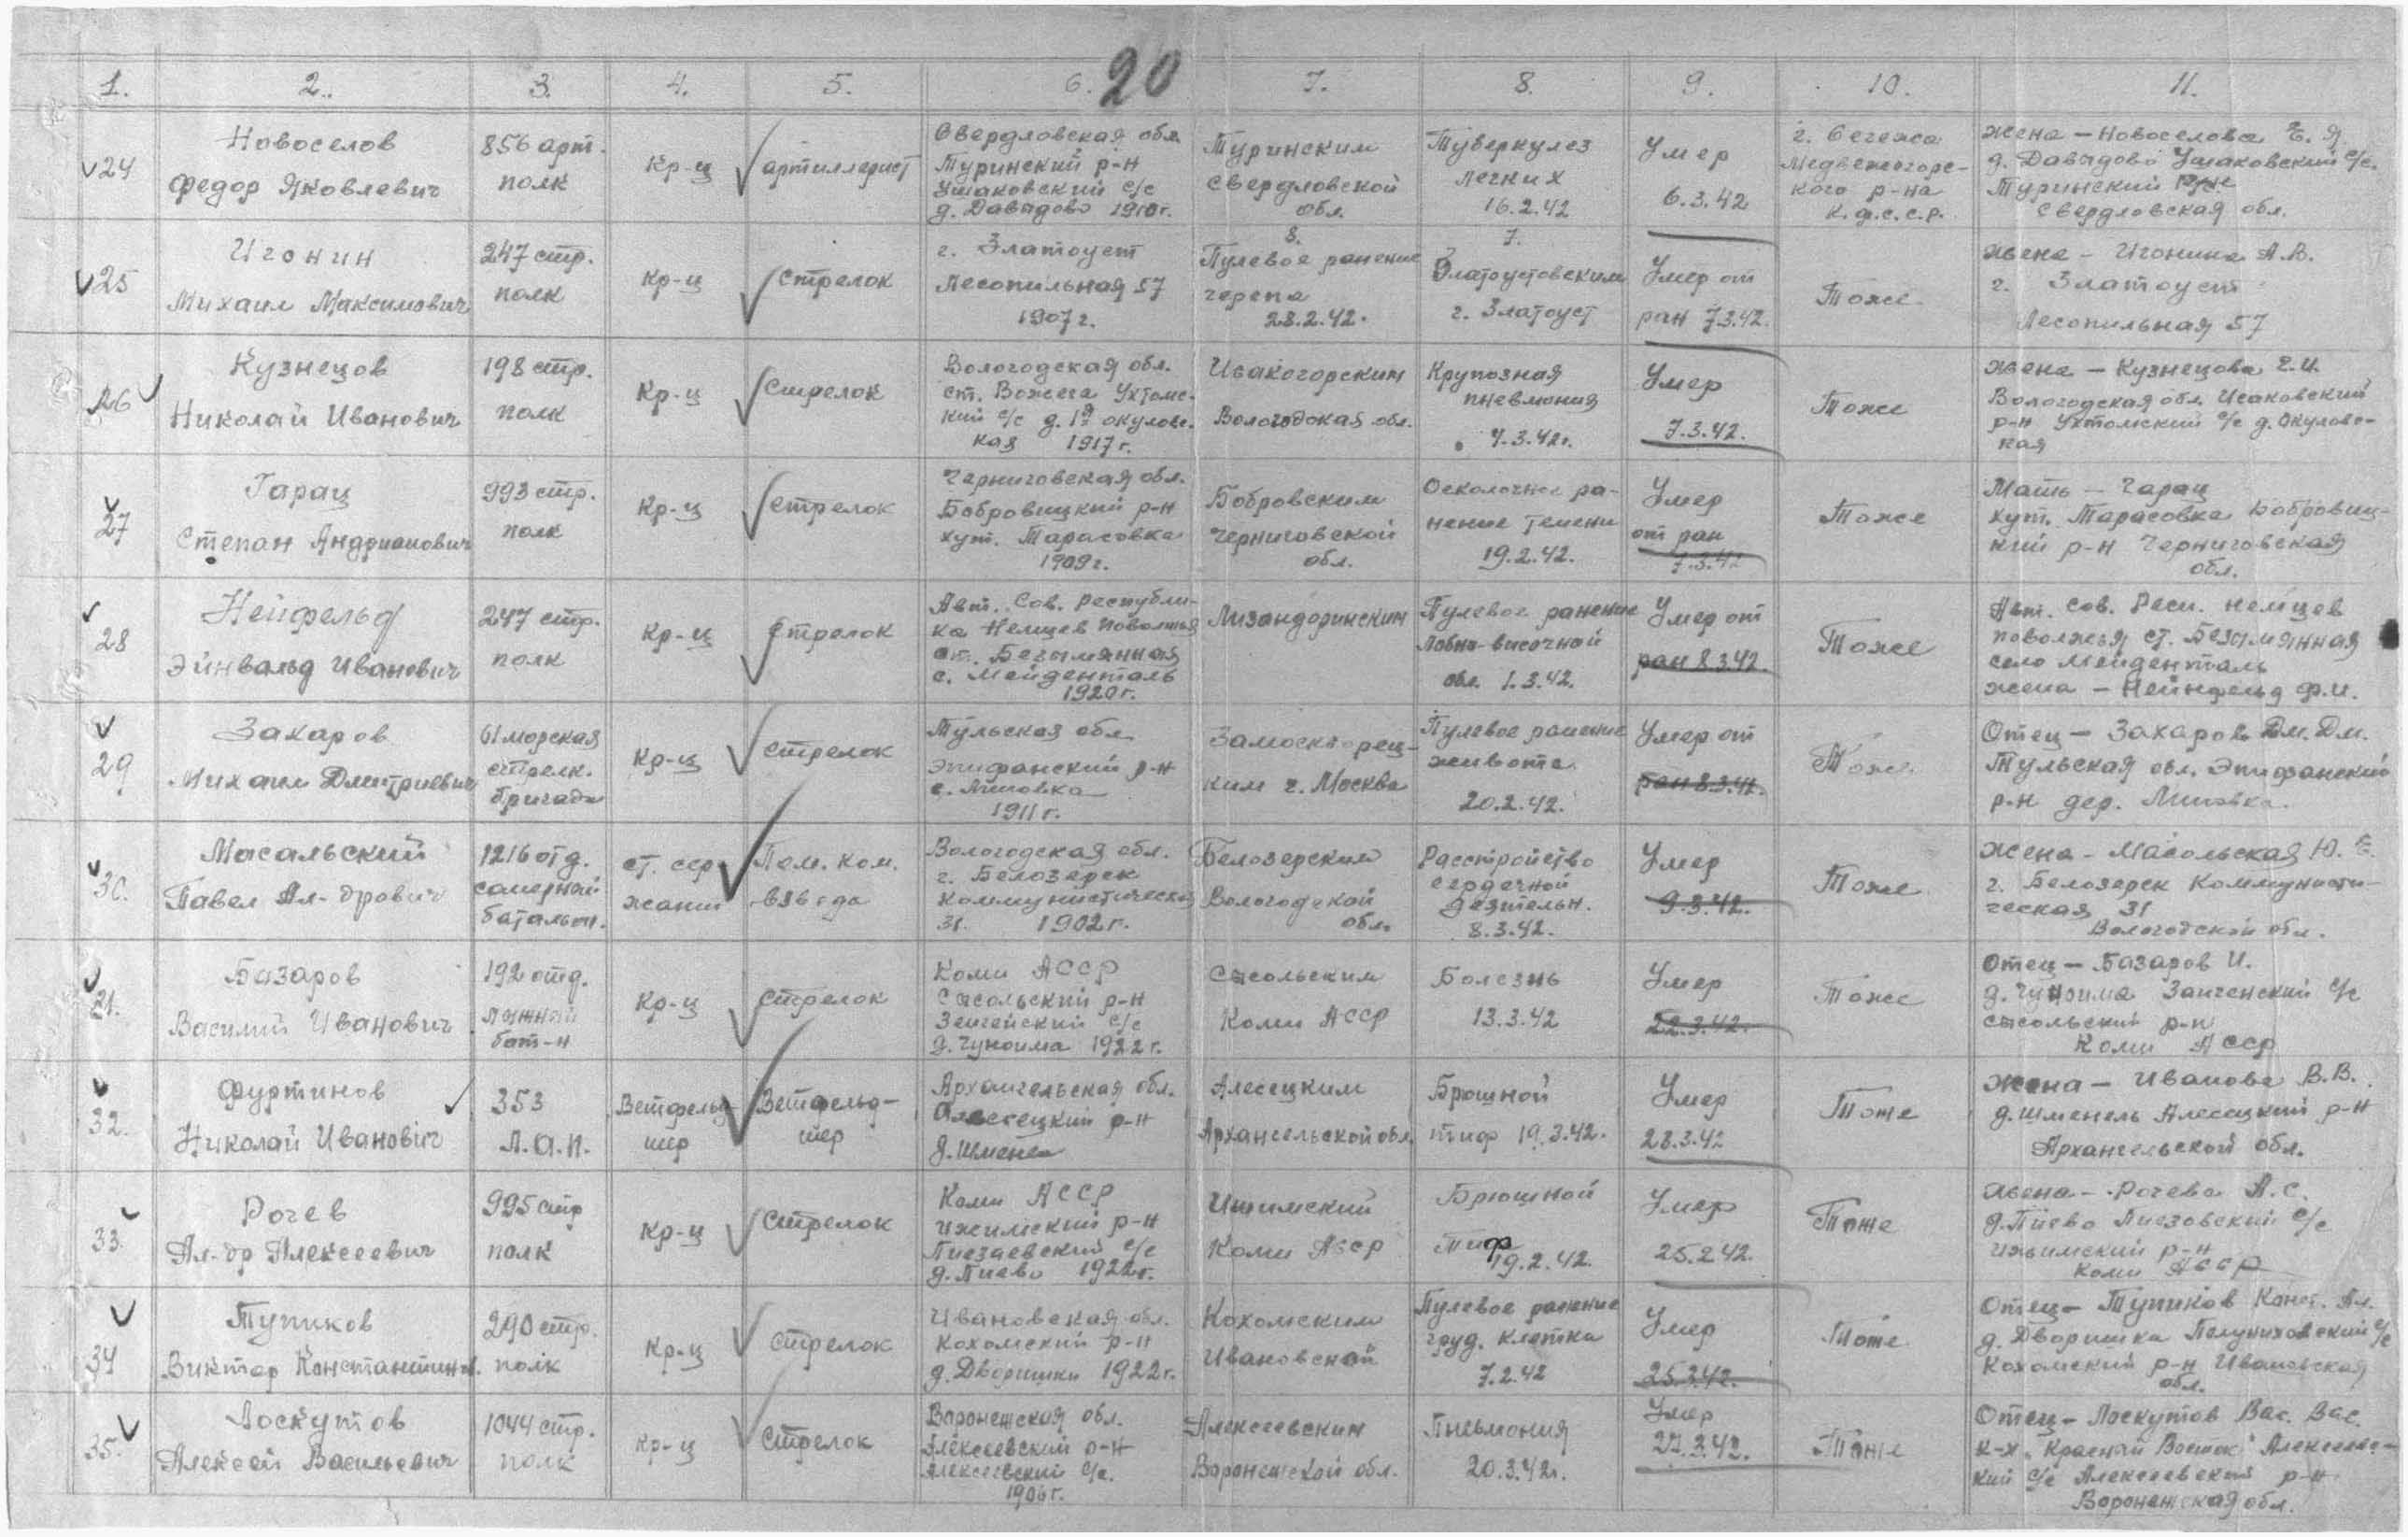 20
1. 2. 3. 4. 5. 6. 7. 8. 9. 10. 11.
24
Новоселов
Федор Яковлевич
856 арт.
полк
Кр-ц
артиллерист
Свердловская обл.
Туринский р-н
Ушаковский с/с
д. Давыдово 1910г.
Туринским
Свердловской
обл.
Туберкулез
легких
16.2.42
Умер
6.3.42
г. Сегежа
Медвежегорс-
кого р-на
К.Ф.С.С.Р.
жена – Новоселова Е. Я.
д. Давыдово Ушаковский с/с.
Туринский
Свердловская обл.
25
Игонин
Михаил Максимович
247 стр.
полк
Кр-ц
Стрелок
г. Златоуст
Лесопильная 57
1907 г.
8.
Пулевое ранение
черепа
28.2.42.
7.
Златоустовским
г. Златоуст
Умер от
ран 7.3.42.
Тоже
жена – Игонина А.В.
г. Златоуст
Лесопильная 57
26
Кузнецов
Николай Иванович
198 стр.
полк
Кр-ц
Стрелок
Вологодская обл.
ст. Вожега Ухтомс-
кий с/с д. 1я Окуловс-
кая 1917 г.
Исакогорским
Вологодская обл.
Крупозная
пневмония
4.3.42г.
Умер
7.3.42.
Тоже
жена – Кузнецова Е.И.
Вологодская обл. Исаковский
р-н Ухтомский с/с д. Окуловс-
кая
27
Гарац
Степан Андрианович
993 стр.
полк
Кр-ц
Стрелок
Черниговская обл.
Бобровицкий р-н
хут. Тарасовка
1909г.
Бобровским
Черниговской
обл.
Осколочное ра-
нение темени
19.2.42.
Умер
от ран
7.3.42
Тоже
Мать – Гарац
хут. Тарасовка Бобровиц-
кий р-н Черниговская
обл.
28
Нейфельд
Эйнвальд Иванович
247 стр.
полк
Кр-ц
Стрелок
Авт. Сов. Республи-
ка Немцев Поволжья
ст. Безымянная
с. Мейденталь
1920г.
Лизандоринским
Пулевое ранение
лобно-височной
обл. 1.3.42.
Умер от
ран 8.3.42.
Тоже
Авт. Сов. Респ. немцев
поволжья ст. Безымянная
село Мейденталь
жена – Нейнфельд Ф.И.
29
Захаров
Михаил Дмитриевич
61 морская
стрелк.
бригада
Кр-ц
стрелок
Тульская обл.
Эпифанский р-н
1911 г.
Замоскворец-
ким г. Москва
Пулевое ранение
живота
20.2.42.
Умер от
ран 8.3.42.
Тоже
Отец – Захаров Дм. Дм.
Тульская обл. Эпифанский
р-н дер.
30.
Масальский
Павел Ал-дрович
1216 отд.
саперный
батальон.
ст. сер
жант
Пом. ком.
взвода
Вологодская обл.
г. Белозерск
Коммунистическая
31. 1902г.
Белозерским
Вологодской
обл.
Расстройство
сердечной
деятельн.
8.3.42.
Умер
9.3.42.
Тоже
жена – Масольская Ю. Е.
г. Белозерск Коммунисти-
ческая 31
Вологодской обл.
31.
Базаров
Василий Иванович
192 отд.
лыжный
бат-н
Кр-ц
Стрелок
Коми АССР
Сысольский р-н
с/с
д. Чукоима 1922г.
Сысольским
Коми АССР
Болезнь
13.3.42
Умер
22.3.42.
Тоже
Отец – Базаров И.
д. Чукоима с/с
Сысольский р-н
Коми АССР
32.
Фуртинов
Николай Иванович
353
Л.А.П.
Ветфельд-
шер
Ветфельд-
шер
Архангельская обл.
р-н
Алесецким
Архангельской обл.
Брюшной
тиф 19.3.42.
Умер
28.3.42
Тоже
жена – Иванова В.В.
д. Шменель Алесецкий р-н
Архангельской обл.
33.
Рочев
Ал-др Алексеевич
995 стр
полк
Кр-ц
Стрелок
Коми АССР
Ижимский р-н
с/с
1922г.
Ишимский
Коми АССР
Брюшной
тиф
19.2.42.
Умер
25.2.42.
Тоже
жена – Рочева А.С.
с/с
Ижимский р-н
Коми АССР
34
Тупиков
Виктор Константинов.
290 стр.
полк
Кр-ц
стрелок
Ивановская обл.
Кохомский р-н
д. Дворишки 1922г.
Кохомским
Ивановской
Пулевое ранение
груд. клетка
7.2.42
Умер
25.3.42.
Тоже
Отец – Тупиков Конст. Ал.
д. Дворишка с/с
Кохомский р-н Ивановская
обл.
35.
Лоскутов
Алексей Васильевич
1044 стр.
полк
Кр-ц
Стрелок
Воронежская обл.
Алексеевский р-н
Алексеевский с/с.
1906г.
Алексеевским
Воронежской обл.
Пневмония
20.3.42г.
Умер
Тоже
Отец – Лоскутов Вас. Вас.
к-х „Красный Восток" Алексеевс-
кий с/с Алексеевский р-н
Воронежская обл.